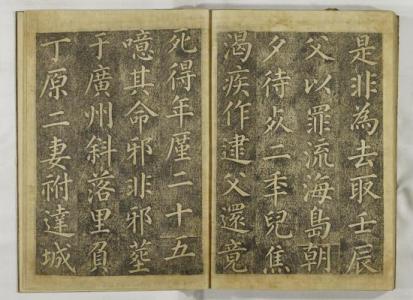 是非為去取壬辰
父以罪流海島朝
夕待二秊兒焦
渴疾作逮父還竟
死得年厪二十五
噫其命邪非邪塟
于廣州斜落里負
丁原二妻祔達城